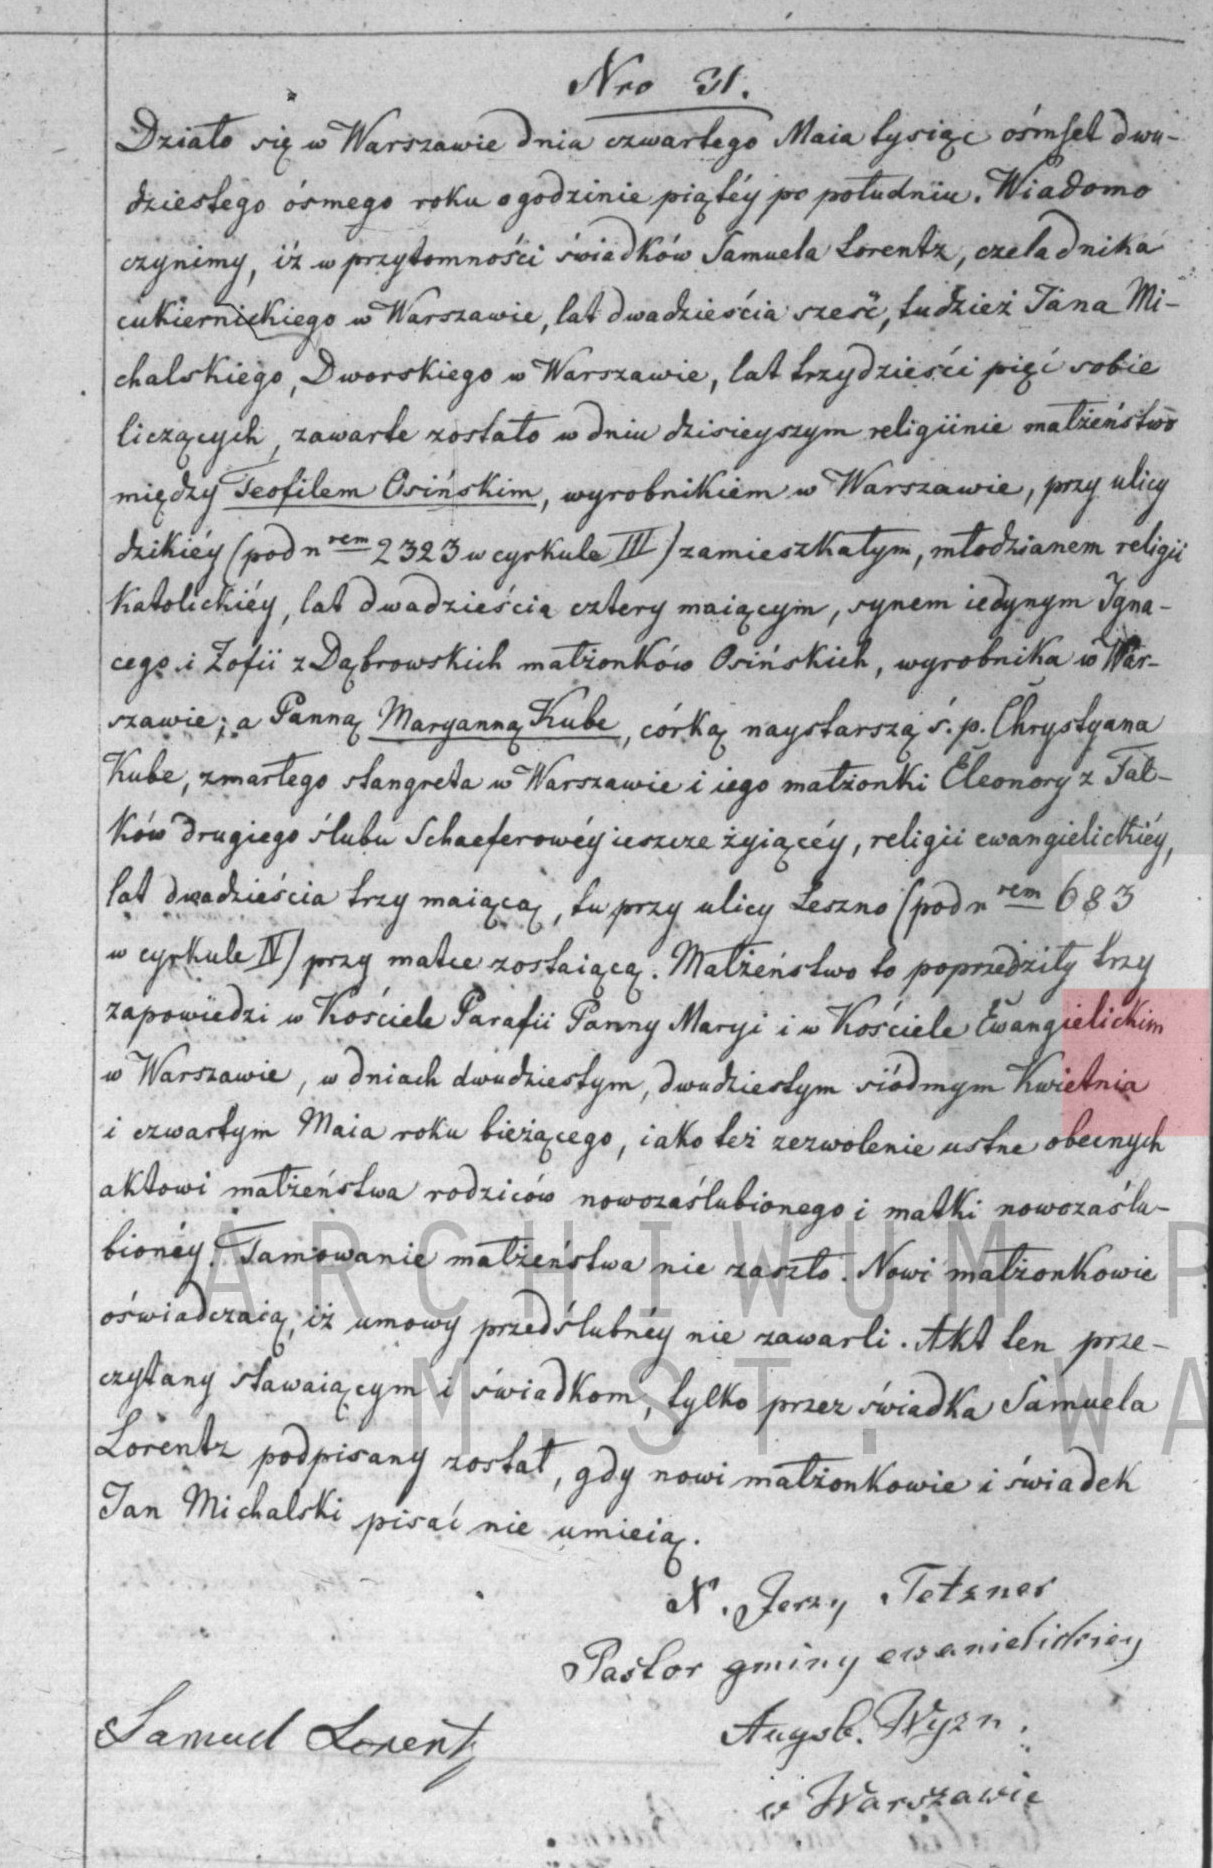 Nro 31.
Działo się w Warszawie dnia czwartego Maia tysiąc ośmset dwu-
dziestego ósmego roku o godzinie piątéy po południu. Wiadomo
czynimy, iż w przytomności świadków Samuela Lorentz, czeladnika
cukiernickiego w Warszawie, lat dwadzieścia sześć, tudzież Jana Mi-
chalskiego, Dworskiego w Warszawie, lat trzydzieści pięć sobie
liczących, zawarte zostało w dniu dzisieyszym religiinie małżeństwo
między Teofilem Osińskim, wyrobnikiem w Warszawie, przy ulicy
dzikiéy (pod nrem 2323 w cyrkule III) zamieszkałym, młodzianem religii
Katolickiéy, lat dwadzieścia cztery maiącym, synem iedynym Igna-
cego i Zofii z Dąbrowskich małżonków Osińskich, wyrobnika w War-
szawie; a Panną Maryanną Kube, córką naystarszą ś. p. Chrystyana
Kube, zmarłego stangreta w Warszawie i iego małżonki Eleonory z Fal-
ków drugiego ślubu Schaeferowéy ieszcze żyiącéy, religii ewangielickiéy,
lat dwadzieścia trzy maiącą, tu przy ulicy Leszno (pod nrem 683
w cyrkule IV) przy matce zostaiącą. Małżeństwo to poprzedziły trzy
zapowiedzi w Kościele Parafii Panny Maryi i w Kościele Ewangielickim
w Warszawie, w dniach dwudziestym, dwudziestym siódmym Kwietnia
i czwartym Maia roku bieżącego, iako też zezwolenie ustne obecnych
aktowi małżeństwa rodziców nowozaślubionego i matki nowozaślu-
bionéy. Tamowanie małżeństwa nie zaszło. Nowi małżonkowie
oświadczaią, iż umowy przedślubnéy nie zawarli. Akt ten prze-
czytany stawaiącym i świadkom, tylko przez świadka Samuela
Lorentz podpisany został, gdy nowi małżonkowie i świadek
Jan Michalski pisać nie umieią.
X. Jerzy Tetzner
Pastor gminy ewanielickiey
Samuel Lorentz
Augsb. Wyzn.
w Warszawie
ARCHIWUM P
M.ST. WA